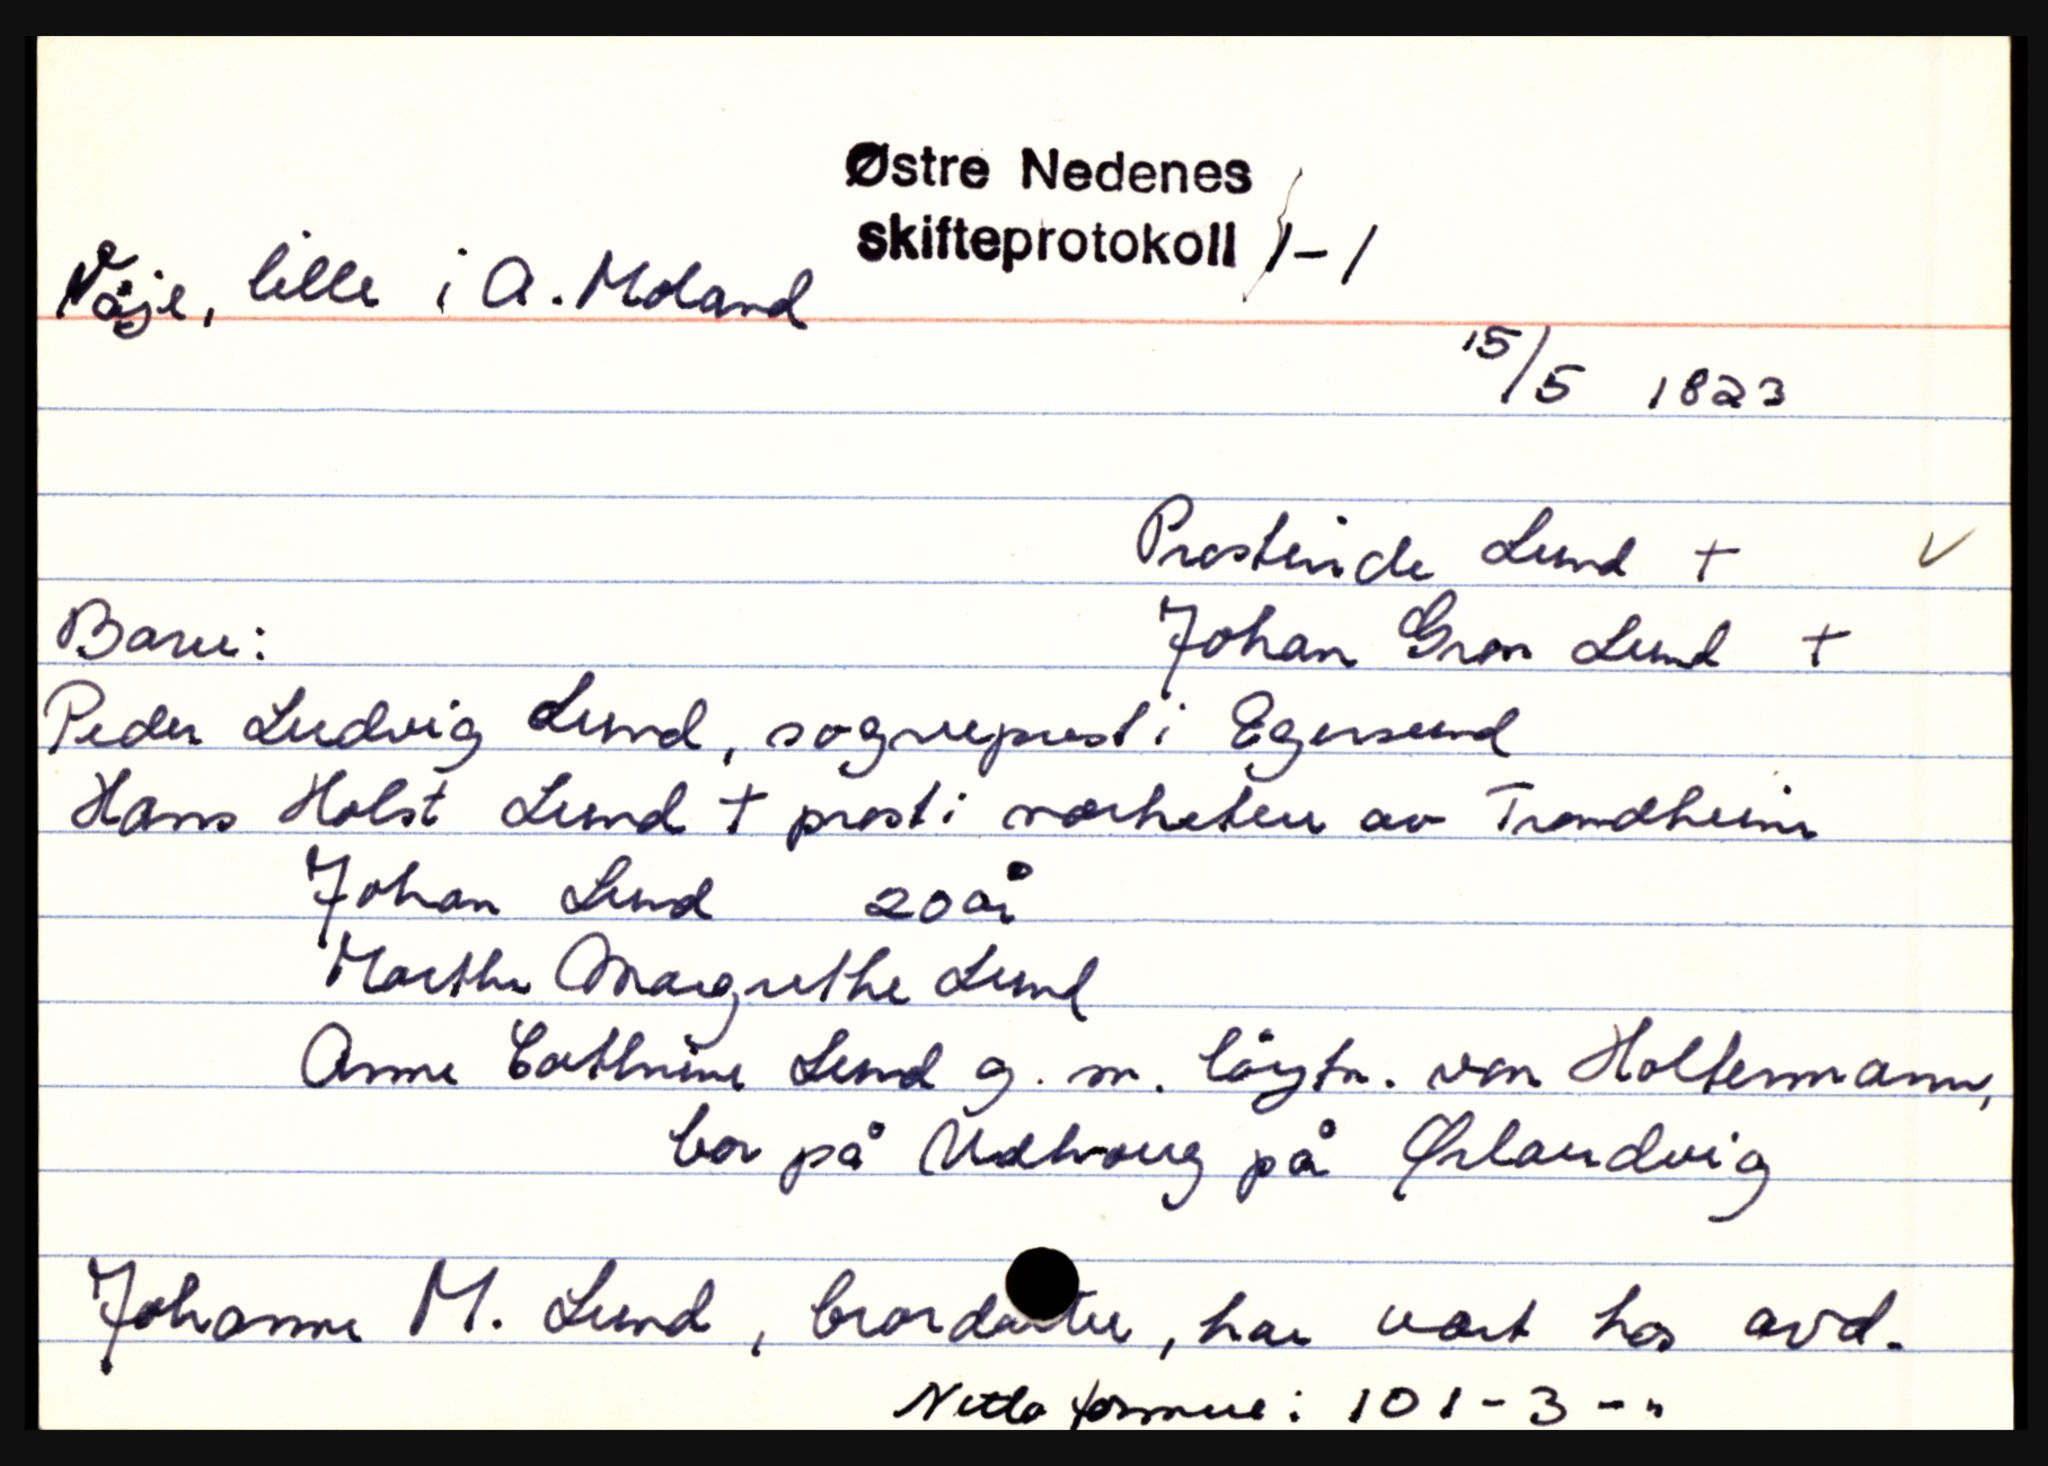 Østre Nedenes
skifteprotokoll 1-1
Våje, lille i A. Moland
15/5 1823
Prostinde Lund +
Barn:
Johan Gron Lund +
Peder Ludvig Lund, sogneprest i Egersund
Hans Holst Lund + prost i nærheten av Trondheim
Johan Lund 20 år
Marthe Margrethe Lund
Anne Cathrine Lund g. m. löytn. von Holtermann,
bor på Udhaug på Ørlandvig
Johanne M. Lund, brordatter, har vært hos avd.
Netto formue: 101-3-"